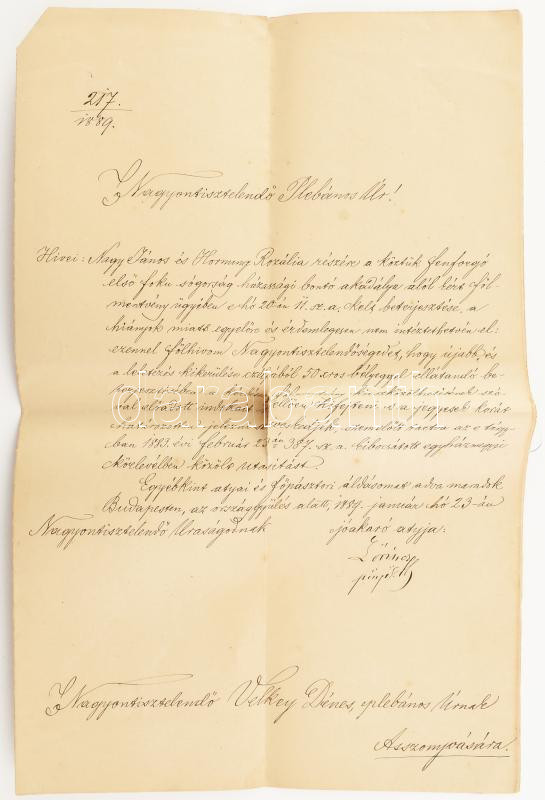 217.
1889.
Nagyontisztelendő Plebános Úr!
Hivei: Nagy János és Hornung Rozália részére a köztük fenforgó
első foku sógorság házassági bontó akadálya alól kért föl-
mentvény ügyében e hó 20-án 11. sz. a. kelt beterjesztése, a
hiányok miatt egyelőre és érdemlegesen nem intéztethetvén el-
ezennel fölhivom Nagyontisztelendőségedet, hogy ujabb, és
a lelet kikerülése czéljából 50 cros bélyeggel ellátandó be-
a
indokait kifejtem s a jegyesek korát
szem előtt tartva az e tárgy-
ban 1883. évi február 23-án 387. sz. a. kibocsátott egyházmegyei
közlevélben közölt utasitást.
Egyébkint atyai és főpásztori áldásomat adva maradok
Budapesten, az országgyülés alatt, 1889. január hó 23-án
Nagyontisztelendő Uraságodnak jóakaró atyja:
Lőrincz
püspök
darabanth
Nagyontisztelendő Velkey Dénes, plebános Úrnak
Asszonyvására.